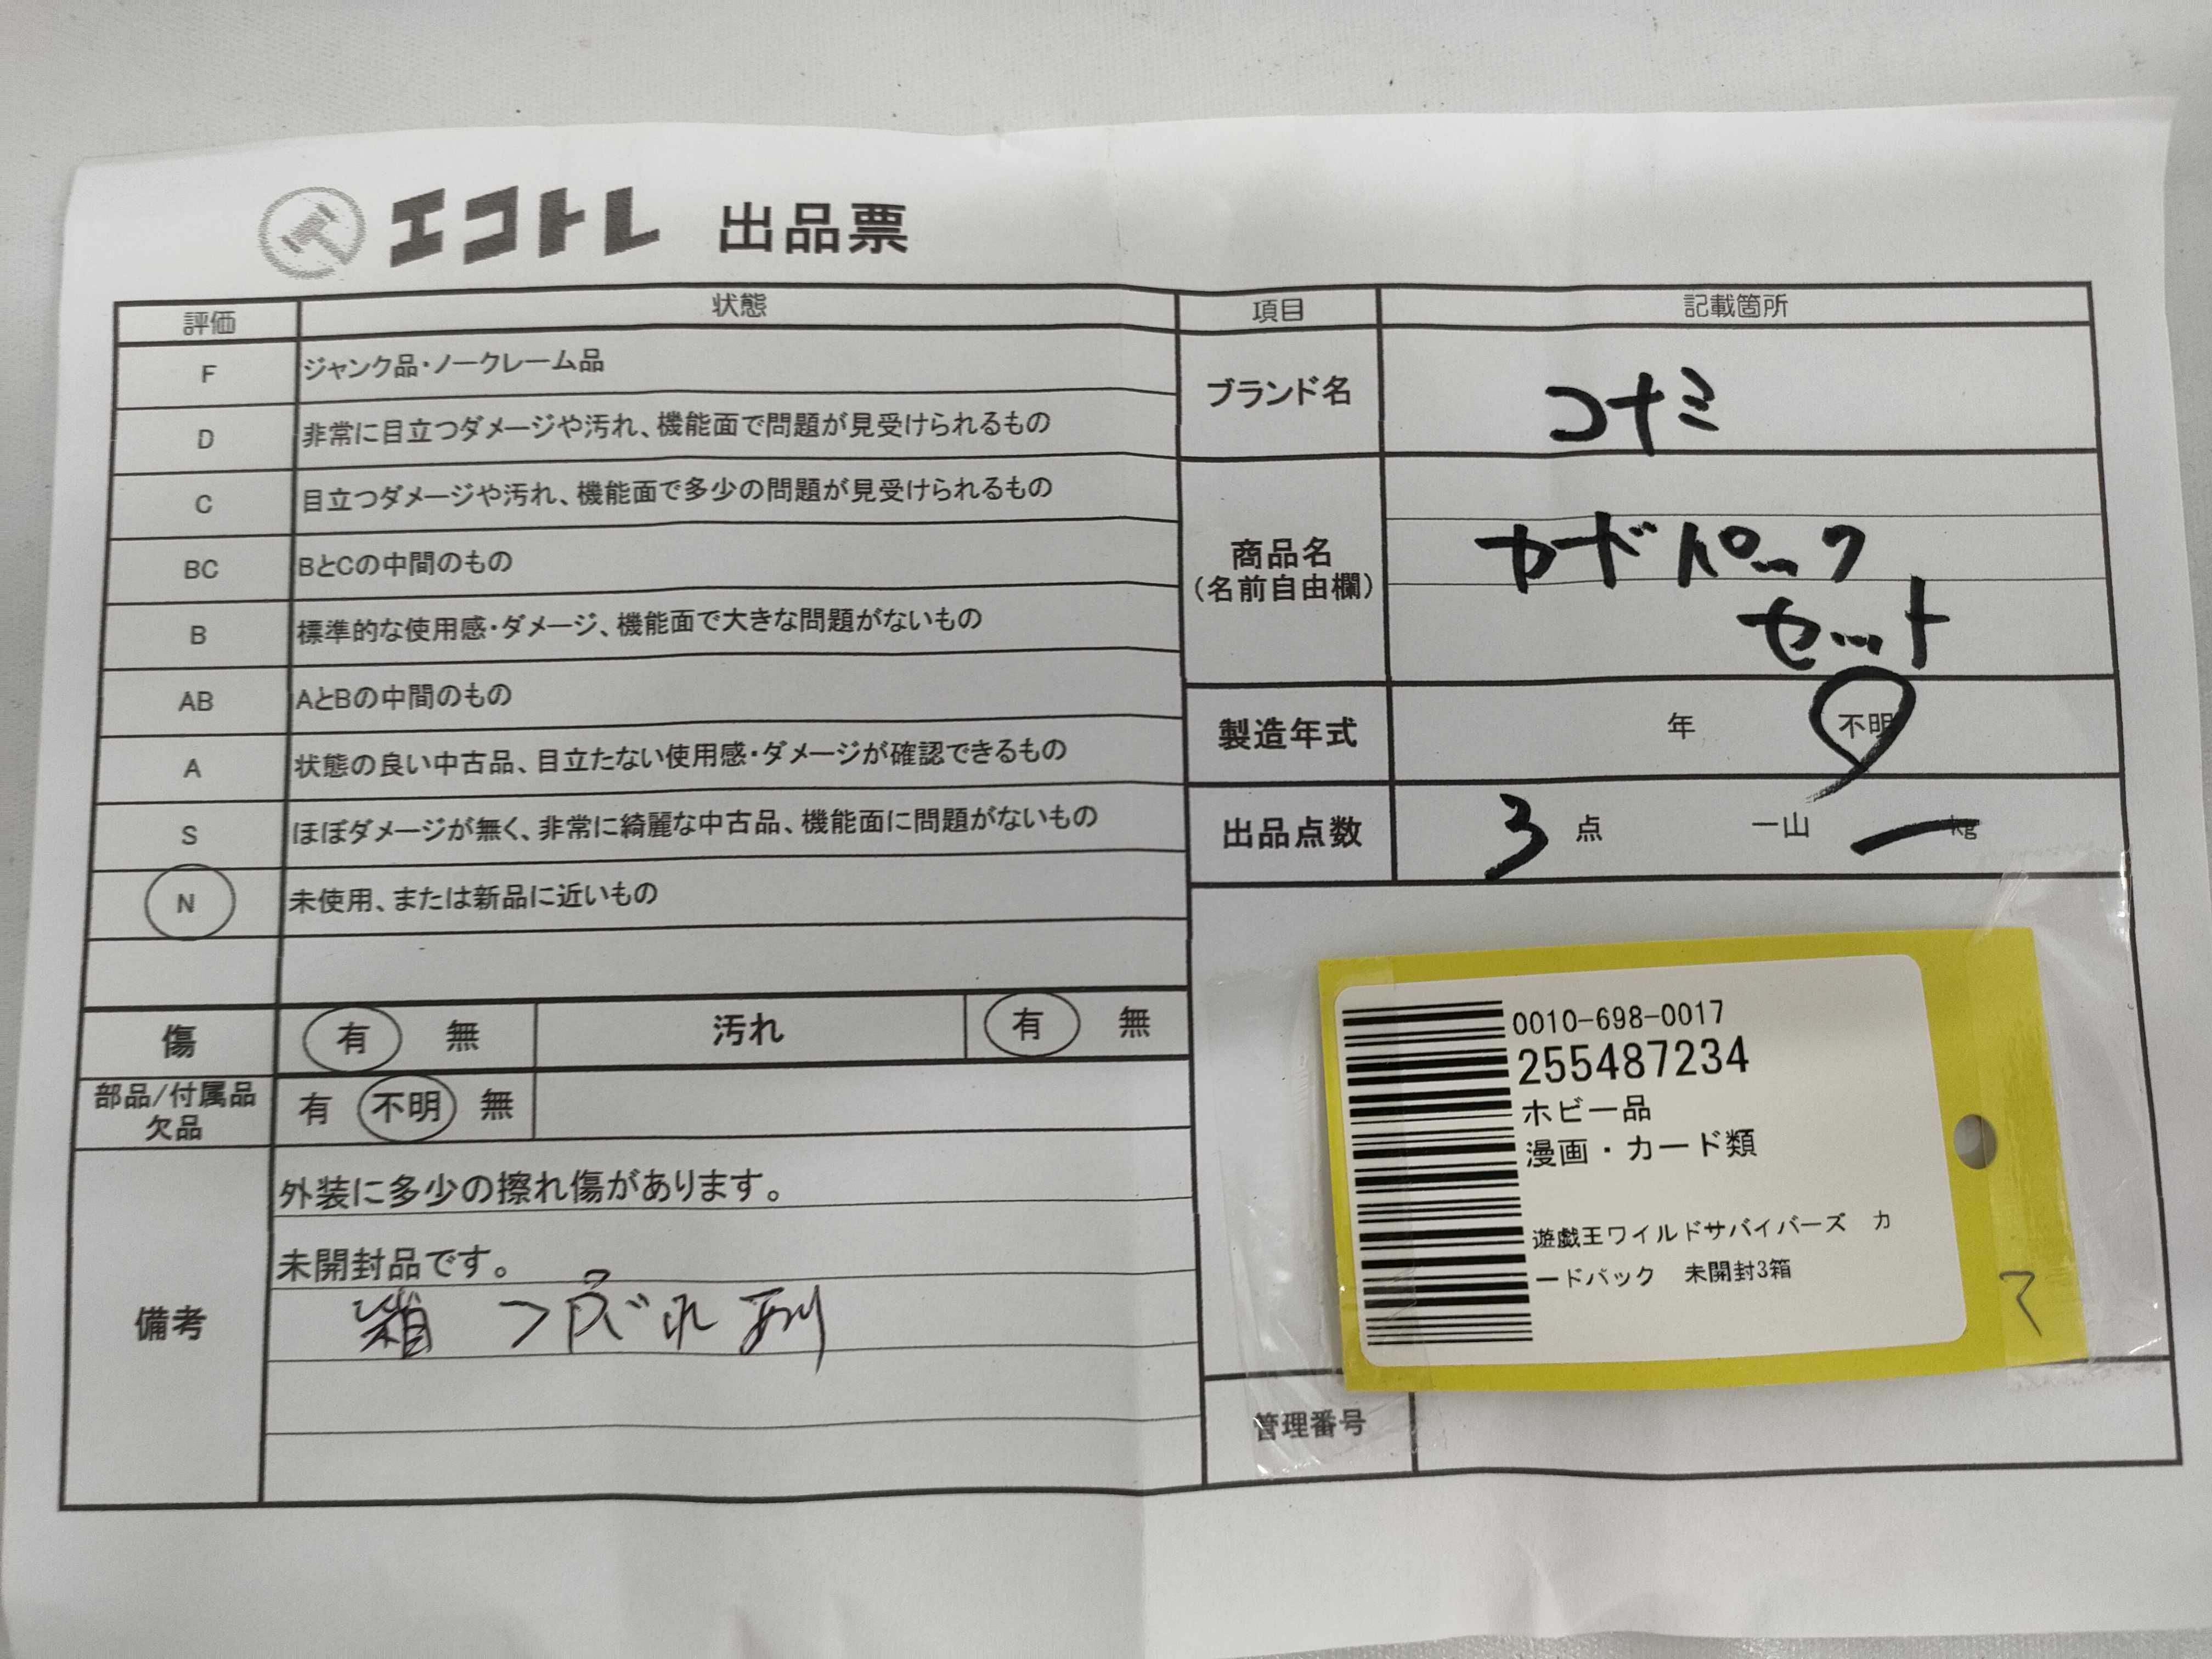 エコトレ 出品票
評価 状態
F ジャンク品・ノークレーム品
D 非常に目立つダメージや汚れ、機能面で問題が見受けられるもの
C 目立つダメージや汚れ、機能面で多少の問題が見受けられるもの
BC BとCの中間のもの
B 標準的な使用感・ダメージ、機能面で大きな問題がないもの
AB AとBの中間のもの
A 状態の良い中古品、目立たない使用感・ダメージが確認できるもの
S ほぼダメージが無く、非常に綺麗な中古品、機能面に問題がないもの
N 未使用、または新品に近いもの
傷 有 無 汚れ 有 無
部品/付属品
欠品
有 不明 無
備考
外装に多少の擦れ傷があります。
未開封品です。
箱 つぶれ
項目 記載箇所
ブランド名 コナミ
商品名
(名前自由欄)
カードパック
セット
製造年式 年 不明
出品点数 3 点 一山 kg
0010-698-0017
255487234
ホビー品
漫画・カード類
遊戯王ワイルドサバイバーズ カ
ードパック 未開封3箱
マ
管理番号